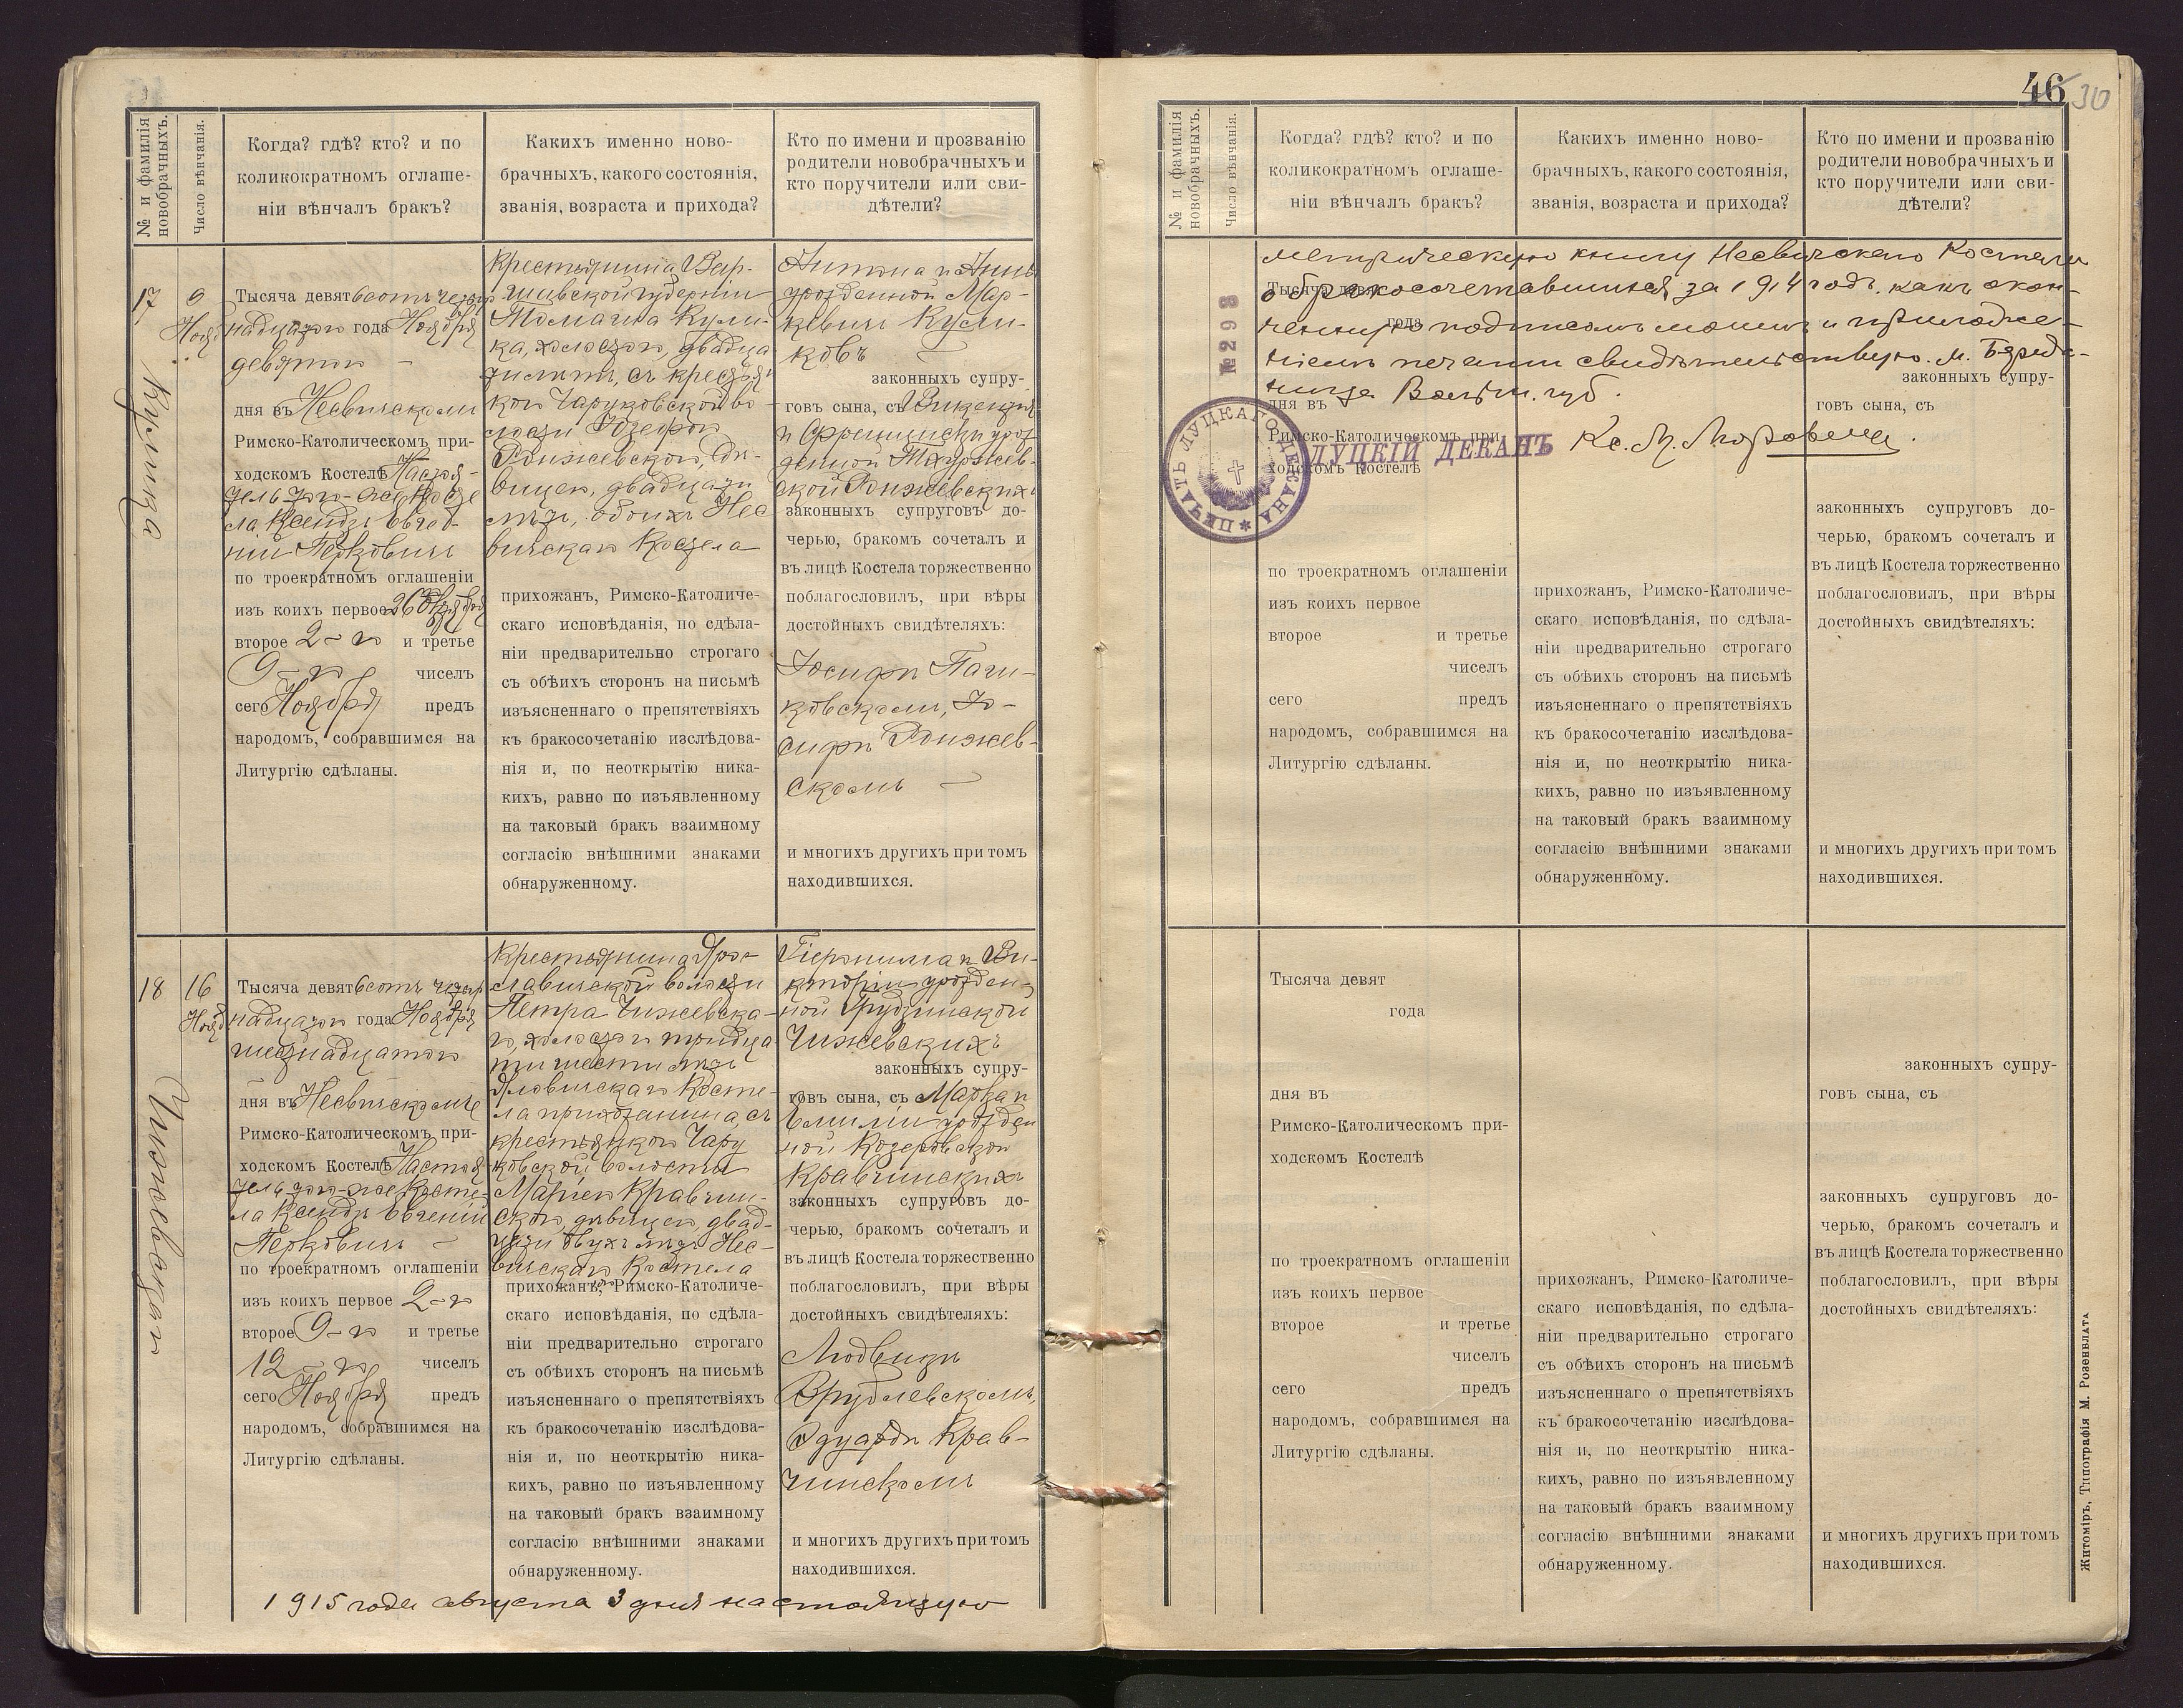 № и фамилія новобрачныхъ.
Число вѣнчанія.
Когда? гдѣ? кто? и по
коликократномъ оглаше-
ніи вѣнчалъ бракъ?
Какихъ именно ново-
брачныхъ, какого состоянія,
званія, возраста и прихода?
Кто по имени и прозванію
родители новобрачныхъ и
кто поручители или сви-
дѣтели?
17
Кулика
9
Нояб
Тысяча девятьсотъ четыр
надцатаго года Ноября
девятаго
дня въ Несвичскомъ
Римско-Католическомъ при-
ходскомъ Костелѣ Настоя-
тель того-же Косте
ла Ксендзъ Евге-
ній Перковичъ
по троекратномъ оглашеніи
изъ коихъ первое 26 Октября
второе 2-го и третье
9-го чиселъ
сего Ноября предъ
народомъ, собравшимся на
Литургію сдѣланы.
Крестьянина Вар-
шавской губерніи
Томаша Кули-
ка, холостого, двадца
ти лѣтъ, съ крестьян
кой Чаруковской во-
лости Юзефой
Рыжевской, дѣ-
вицей, двадцати
лѣтъ, обоихъ Нес
вичскаго Костела
прихожанъ, Римско-Католиче-
скаго исповѣданія, по сдѣла-
ніи предварительно строгаго
съ обѣихъ сторонъ на письмѣ
изъясненнаго о препятствіяхъ
къ бракосочетанію изслѣдова-
нія и, по неоткрытію ника-
кихъ, равно по изъявленному
на таковый бракъ взаимному
согласію внѣшними знаками
обнаруженному.
Антона и Анны
урожденной Мар-
кевичъ Кули-
ковъ
законныхъ супру-
говъ сына, съ Викентія
и Францишки урож
денной
законныхъ супруговъ до-
черью, бракомъ сочеталъ и
въ лицѣ Костела торжественно
поблагословилъ, при вѣры
достойныхъ свидѣтеляхъ:
Іосифѣ Пачи-
ковскомъ, Іо-
сифѣ Рыжев-
скомъ
и многихъ другихъ при томъ
находившихся.
18
Чижевскаго
16
Нояб
Тысяча девятьсотъ четыр
надцатаго года Ноября
шестнадцатаго
дня въ Несвичскомъ
Римско-Католическомъ при-
ходскомъ Костелѣ Настоя
тель того-же Косте-
ла Ксендзъ Евгеній
Перковичъ
по троекратномъ оглашеніи
изъ коихъ первое 2-го
второе 9-го и третье
12-го чиселъ
сего Ноября предъ
народомъ, собравшимся на
Литургію сдѣланы.
Крестьянина Яро-
славичской волости
Петра Чижевска-
го, холостого тридца
ти шести лѣтъ
Яловичскаго Косте-
ла прихожанина, съ
крестьянкой Чару
ковской волости
Маріей Кравчин-
ской, дѣвицей, двад-
цати двухъ лѣтъ Нес-
вичскаго Костела
прихожанкой, Римско-Католиче-
скаго исповѣданія, по сдѣла-
ніи предварительно строгаго
съ обѣихъ сторонъ на письмѣ
изъясненнаго о препятствіяхъ
къ бракосочетанію изслѣдова-
нія и, по неоткрытію ника-
кихъ, равно по изъявленному
на таковый бракъ взаимному
согласію внѣшними знаками
обнаруженному.
Гіеронима и Ви-
кторіи урожден-
ной Грудзинской
Чижевскихъ
законныхъ супру-
говъ сына, съ Марка и
Емиліи урожден
ной Козеровской
Кравчинскихъ
законныхъ супруговъ до-
черью, бракомъ сочеталъ и
въ лицѣ Костела торжественно
поблагословилъ, при вѣры
достойныхъ свидѣтеляхъ:
Людвигѣ
Врублевскомъ,
Эдуардѣ Крав-
чинскомъ
и многихъ другихъ при томъ
находившихся.
1915 года августа 3 дня настоящую
46
30
№ и фамилія новобрачныхъ.
Число вѣнчанія.
Когда? гдѣ? кто? и по
коликократномъ оглаше-
ніи вѣнчалъ бракъ?
Какихъ именно ново-
брачныхъ, какого состоянія,
званія, возраста и прихода?
Кто по имени и прозванію
родители новобрачныхъ и
кто поручители или сви-
дѣтели?
метрическую книгу Несвичскаго Костела
о бракосочетавшихся за 1914 годъ, какъ окон-
ченную подписомъ моимъ и приложе-
ніемъ печати свидѣтельствую. м. Берез-
ница Волын. губ.
№ 298
ПЕЧАТЬ ЛУЦКАГО ДЕКАНА
ЛУЦКІЙ ДЕКАНЪ
Тысяча девят
года
дня въ
Римско-Католическомъ при-
ходскомъ Костелѣ
по троекратномъ оглашеніи
изъ коихъ первое
второе и третье
чиселъ
сего предъ
народомъ, собравшимся на
Литургію сдѣланы.
прихожанъ, Римско-Католиче-
скаго исповѣданія, по сдѣла-
ніи предварительно строгаго
съ обѣихъ сторонъ на письмѣ
изъясненнаго о препятствіяхъ
къ бракосочетанію изслѣдова-
нія и, по неоткрытію ника-
кихъ, равно по изъявленному
на таковый бракъ взаимному
согласію внѣшними знаками
обнаруженному.
законныхъ супру-
говъ сына, съ
законныхъ супруговъ до-
черью, бракомъ сочеталъ и
въ лицѣ Костела торжественно
поблагословилъ, при вѣры
достойныхъ свидѣтеляхъ:
и многихъ другихъ при томъ
находившихся.
Тысяча девят
года
дня въ
Римско-Католическомъ при-
ходскомъ Костелѣ
по троекратномъ оглашеніи
изъ коихъ первое
второе и третье
чиселъ
сего предъ
народомъ, собравшимся на
Литургію сдѣланы.
прихожанъ, Римско-Католиче-
скаго исповѣданія, по сдѣла-
ніи предварительно строгаго
съ обѣихъ сторонъ на письмѣ
изъясненнаго о препятствіяхъ
къ бракосочетанію изслѣдова-
нія и, по неоткрытію ника-
кихъ, равно по изъявленному
на таковый бракъ взаимному
согласію внѣшними знаками
обнаруженному.
законныхъ супру-
говъ сына, съ
законныхъ супруговъ до-
черью, бракомъ сочеталъ и
въ лицѣ Костела торжественно
поблагословилъ, при вѣры
достойныхъ свидѣтеляхъ:
и многихъ другихъ при томъ
находившихся.
Житомiръ, Типографія М. Розенблата